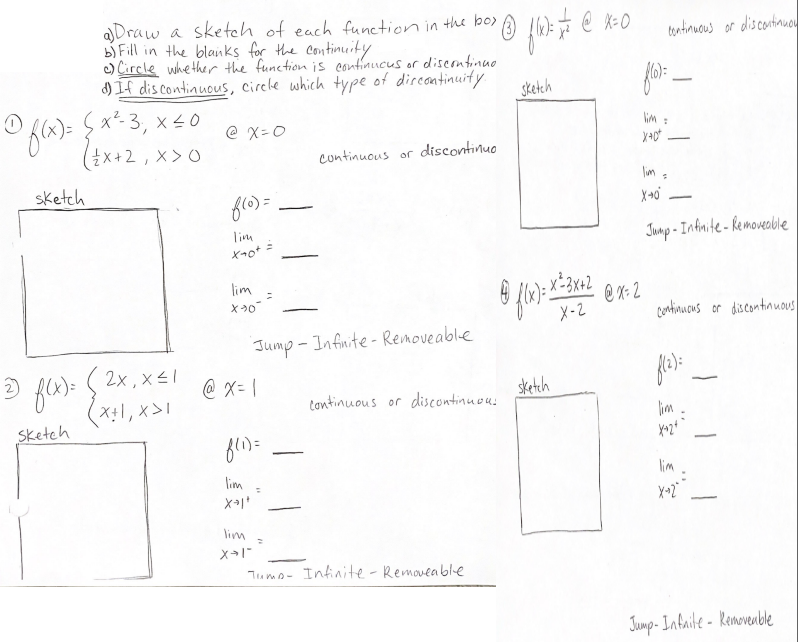 a) Draw a sketch of each function in the box
b) Fill in the blanks for the continuity
c) Circle whether the function is continuous or discontinuo
d) If discontinuous, circle which type of discontinuity
① f(x) = { x²-3, x ≤ 0
½x+2, x > 0
@ x=0
continuous or discontinuo
sketch
f(0) = __
lim x→0⁺ = __
lim x→0⁻ = __
Jump - Infinite - Removeable
② f(x) = { 2x, x ≤ 1
x+1, x > 1
@ x=1
continuous or discontinuous
sketch
f(1) = __
lim x→1⁺ = __
lim x→1⁻ = __
Jump - Infinite - Removeable
③ f(x) = 1/x² @ x=0
continuous or discontinuou
sketch
f(0) = __
lim x→0⁺ = __
lim x→0⁻ = __
Jump - Infinite - Removeable
④ f(x) = x²-3x+2 / x-2 @ x=2
continuous or discontinuous
sketch
f(2) = __
lim x→2⁺ = __
lim x→2⁻ = __
Jump - Infinite - Removeable